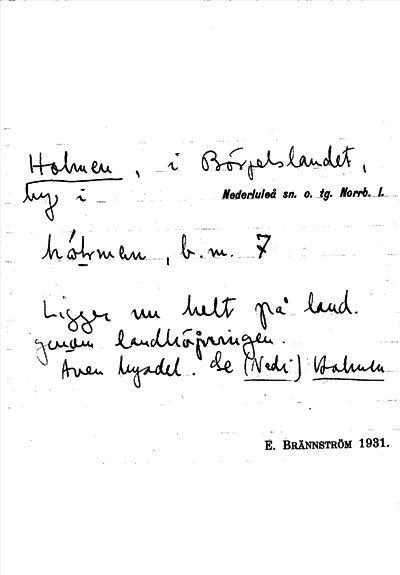 Holmen, i Börjelslandet,
by i Nederluleå sn. o. tg. Norrb. l.
hó̱lrmen, b.m. 7
Ligger nu helt på land.
genom landhöjningen.
Även bysdel. Se (Nedi) Holmen
E. BRÄNNSTRÖM 1931.